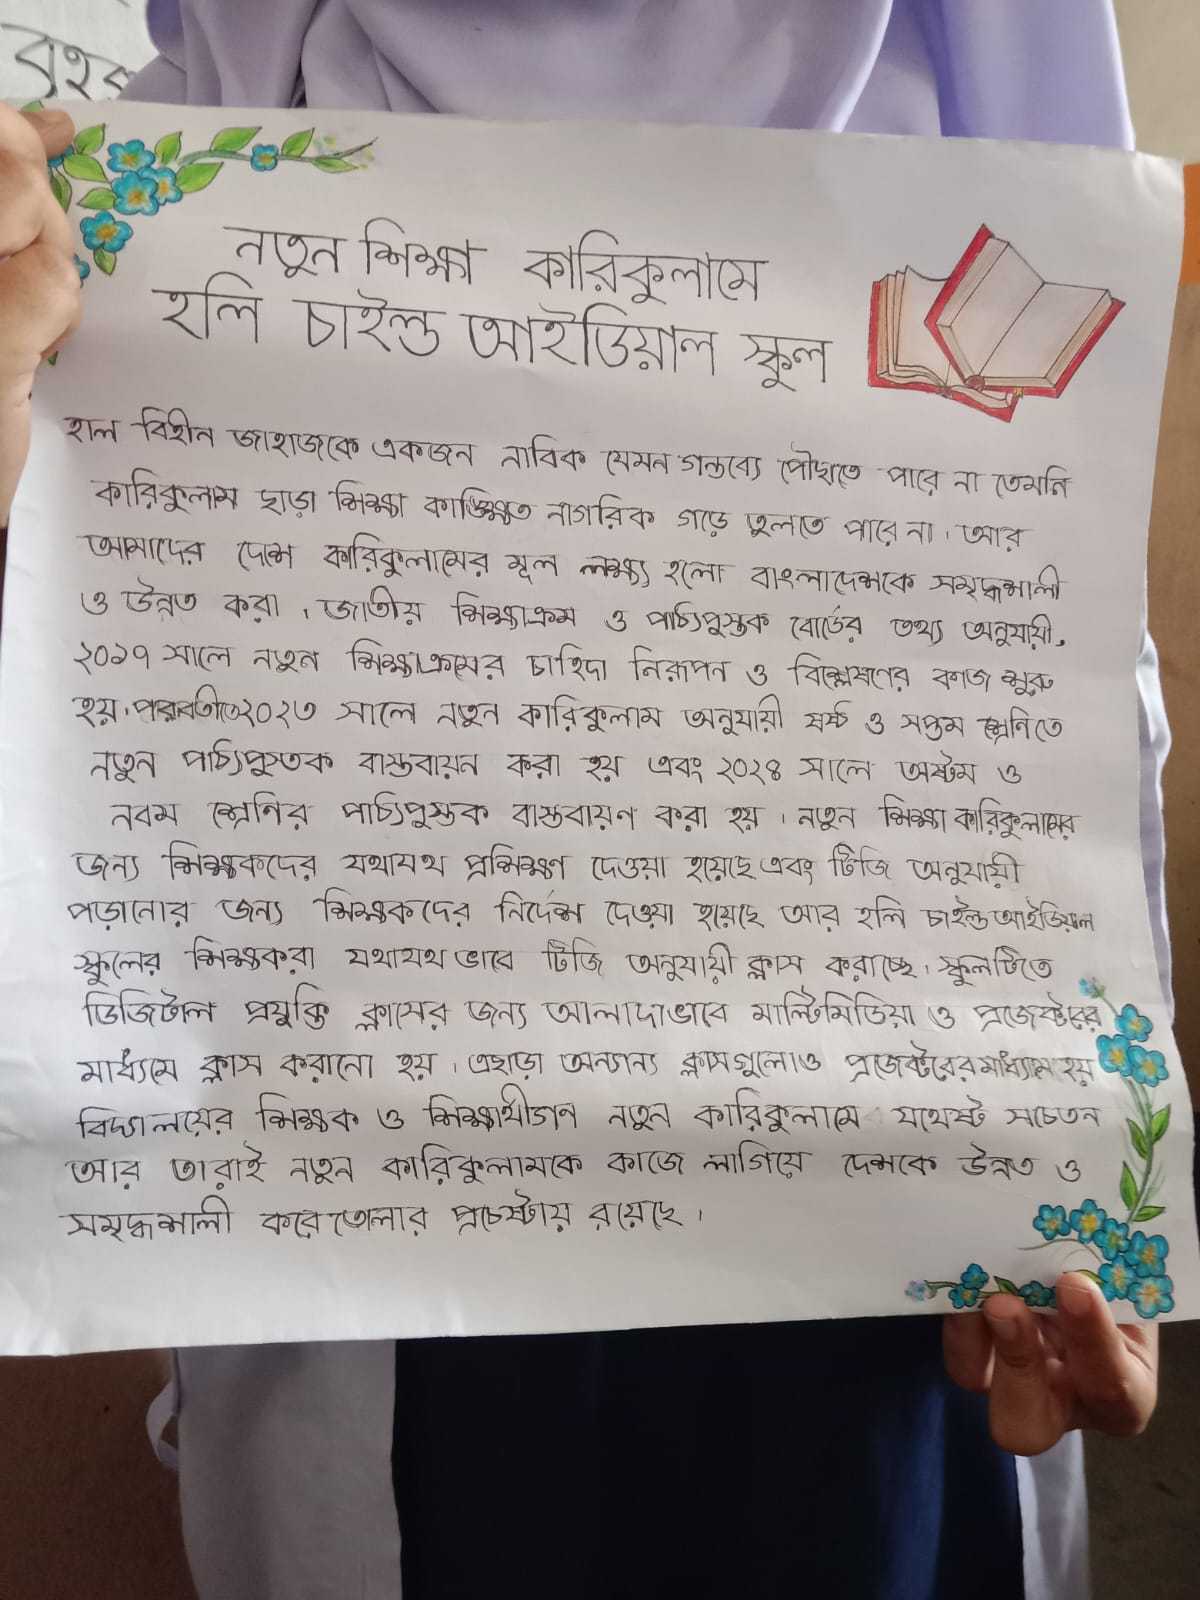 বৃহ
নতুন শিক্ষা কারিকুলামে
হলি চাইল্ড আইডিয়াল স্কুল
হাল বিহীন জাহাজকে একজন নাবিক যেমন গন্তব্যে পৌছাতে পারে না তেমনি
কারিকুলাম ছাড়া শিক্ষা কাঙ্ক্ষিত নাগরিক গড়ে তুলতে পারে না। আর
আমাদের দেশে কারিকুলামের মূল লক্ষ্য হলো বাংলাদেশকে সমৃদ্ধশালী
ও উন্নত করা। জাতীয় শিক্ষাক্রম ও পাঠ্যপুস্তক বোর্ডের তথ্য অনুযায়ী,
২০১৭ সালে নতুন শিক্ষাক্রমের চাহিদা নিরূপন ও বিশ্লেষণের কাজ শুরু
হয়। পরবর্তীতে ২০২৩ সালে নতুন কারিকুলাম অনুযায়ী ষষ্ঠ ও সপ্তম শ্রেণিতে
নতুন পাঠ্যপুস্তক বাস্তবায়ন করা হয় এবং ২০২৪ সালে অষ্টম ও
নবম শ্রেণির পাঠ্যপুস্তক বাস্তবায়ণ করা হয়। নতুন শিক্ষা কারিকুলামের
জন্য শিক্ষকদের যথাযথ প্রশিক্ষণ দেওয়া হয়েছে এবং টিজি অনুযায়ী
পড়ানোর জন্য শিক্ষকদের নির্দেশ দেওয়া হয়েছে আর হলি চাইল্ড আইডিয়াল
স্কুলের শিক্ষকরা যথাযথ ভাবে টিজি অনুযায়ী ক্লাস করাচ্ছে। স্কুলটিতে
ডিজিটাল প্রযুক্তি ক্লাসের জন্য আলাদাভাবে মাল্টিমিডিয়া ও প্রজেক্টরের
মাধ্যমে ক্লাস করানো হয়। এছাড়া অন্যান্য ক্লাসগুলোও প্রজেক্টরের মাধ্যমে হয়
বিদ্যালয়ের শিক্ষক ও শিক্ষার্থীগণ নতুন কারিকুলামে যথেষ্ট সচেতন
আর তারাই নতুন কারিকুলামকে কাজে লাগিয়ে দেশকে উন্নত ও
সমৃদ্ধশালী করে তোলার প্রচেষ্টায় রয়েছে।